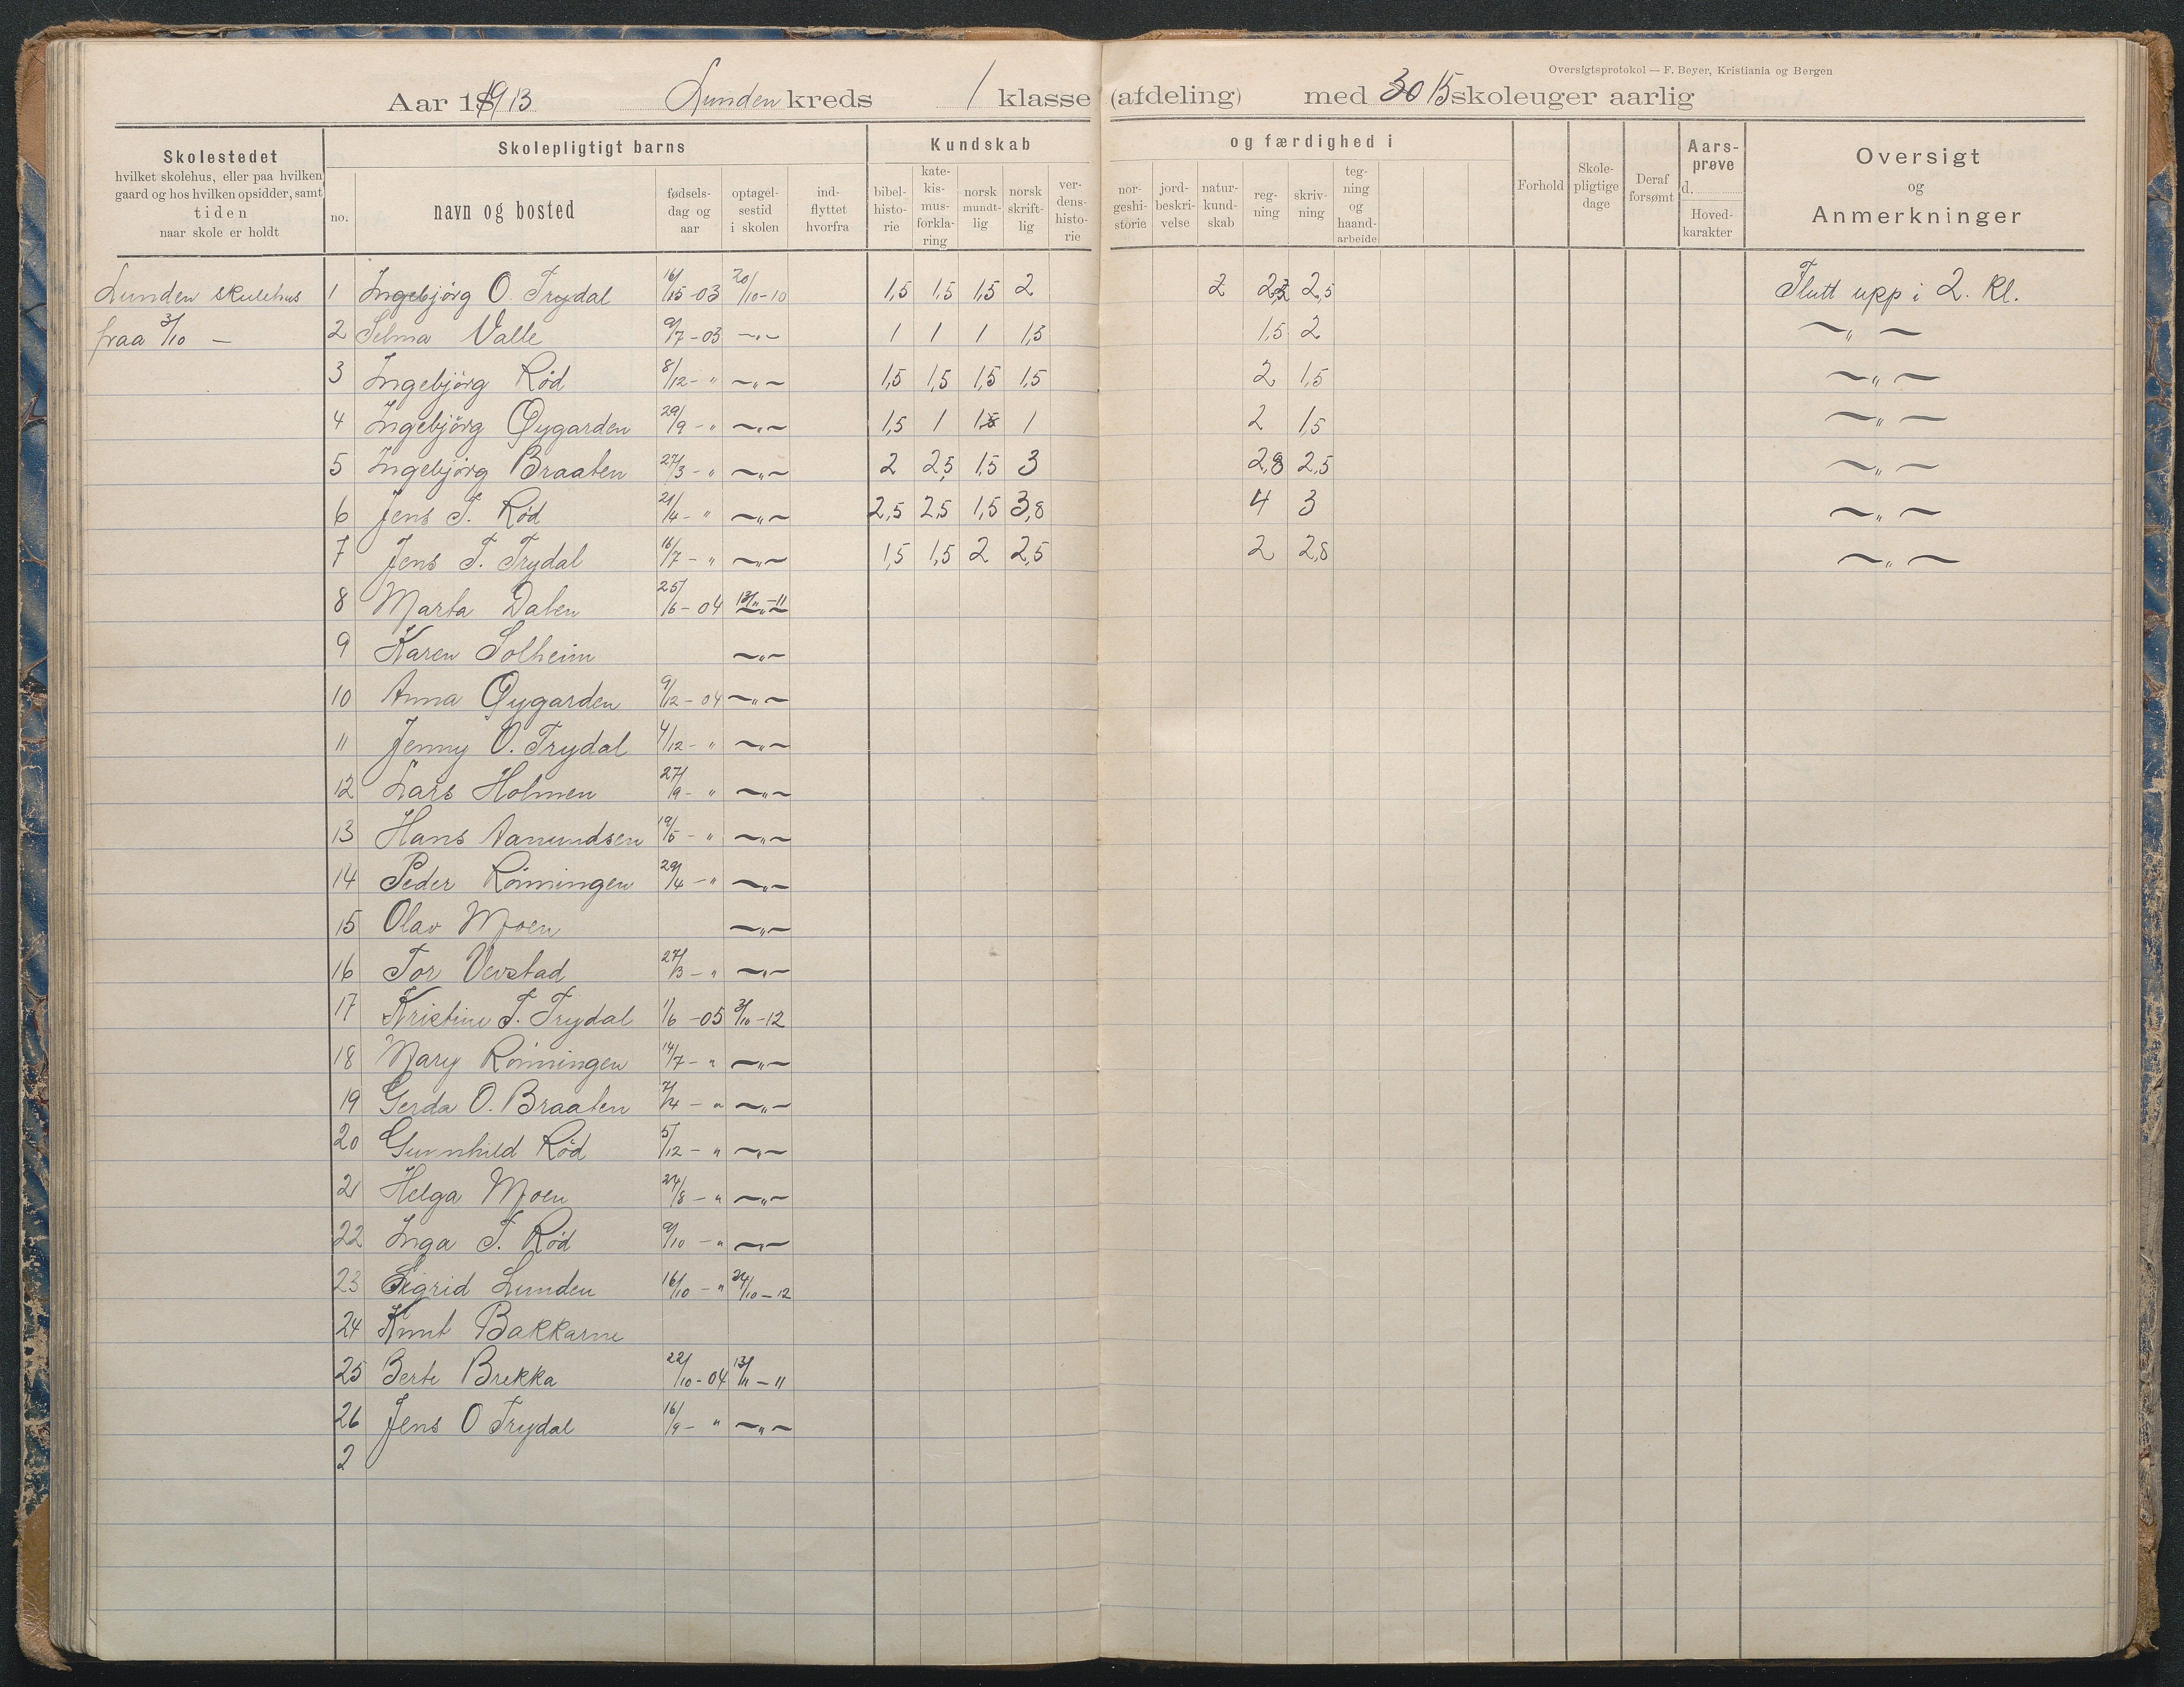 Oversigtsprotokol — F. Beyer, Kristiania og Bergen
Aar 1913 Lunden kreds 1 klasse (afdeling) med 30 15 skoleuger aarlig
Skolestedet
hvilket skolehus, eller paa hvilken
gaard og hos hvilken opsidder, samt
tiden
naar skole er holdt
Skolepligtigt barns
no.
navn og bosted
fødsels-
dag og
aar
optagel-
sestid
i skolen
ind-
flyttet
hvorfra
Kundskab og færdighed i
bibel-
histo-
rie
kate-
kis-
mus-
forkla-
ring
norsk
mundt-
lig
norsk
skrift-
lig
ver-
dens-
histo-
rie
nor-
geshi-
storie
jord-
beskri-
velse
natur-
kund-
skab
reg-
ning
skriv-
ning
teg-
ning
og
haand-
arbeide
Forhold
Skole-
pligtige
dage
Deraf
forsømt
Aars-
prøve
d.
Hoved-
karakter
Oversigt
og
Anmerkninger
Lunden skulehus 1 Ingebjörg O. Trydal 16/ -03 20/10-10 1,5 1,5 1,5 2 2 2,5 Flutt upp i 2. kl.
fraa 3/10 — 2 Selma Valle 9/7-03 —„— 1 1 1 1,3 1,5 2 —„—
3 Ingebjörg Rød 8/12-„ —„— 1,5 1,5 1,5 1,5 2 1,5 —„—
4 Ingebjörg Øygarden 29/9-„ —„— 1,5 1 1 2 1,5 —„—
5 Ingebjörg Braaten 27/3-„ —„— 2 2,5 1,5 3 2,8 2,5 —„—
6 Jens T. Rød 21/4-„ —„— 2,5 2,5 1,5 3,8 4 3 —„—
7 Jens T. Trydal 16/7-„ —„— 1,5 1,5 2 2,5 2 2,8 —„—
8 Marta Dalen 25/6-04 13/11-11
9 Karen Solheim —„—
10 Anna Øygarden 9/12-04 —„—
11 Jenny O. Trydal 4/12-„ —„—
12 Lars Holmen 27/9-„ —„—
13 Hans Aanundsen 19/5-„ —„—
14 Peder Rönningen 29/4-„ —„—
15 Olav Moen —„—
16 Tor Vevstad 27/3-„ —„—
17 Kristine T. Trydal 1/6-05 3/10-12
18 Mary Rönningen 14/7-„ —„—
19 Gerda O. Braaten 7/4-„ —„—
20 Gunnhild Rød 5/12-„ —„—
21 Helga Moen 24/8-„ —„—
22 Inga T. Rød 9/10-„ —„—
23 Sigrid Lunden 16/10-„ 24/10-12
24 Knut Bakkarne
25 Berte Brekka 22/10-04 13/11-11
26 Jens O Trydal 16/9-„ —„—
2